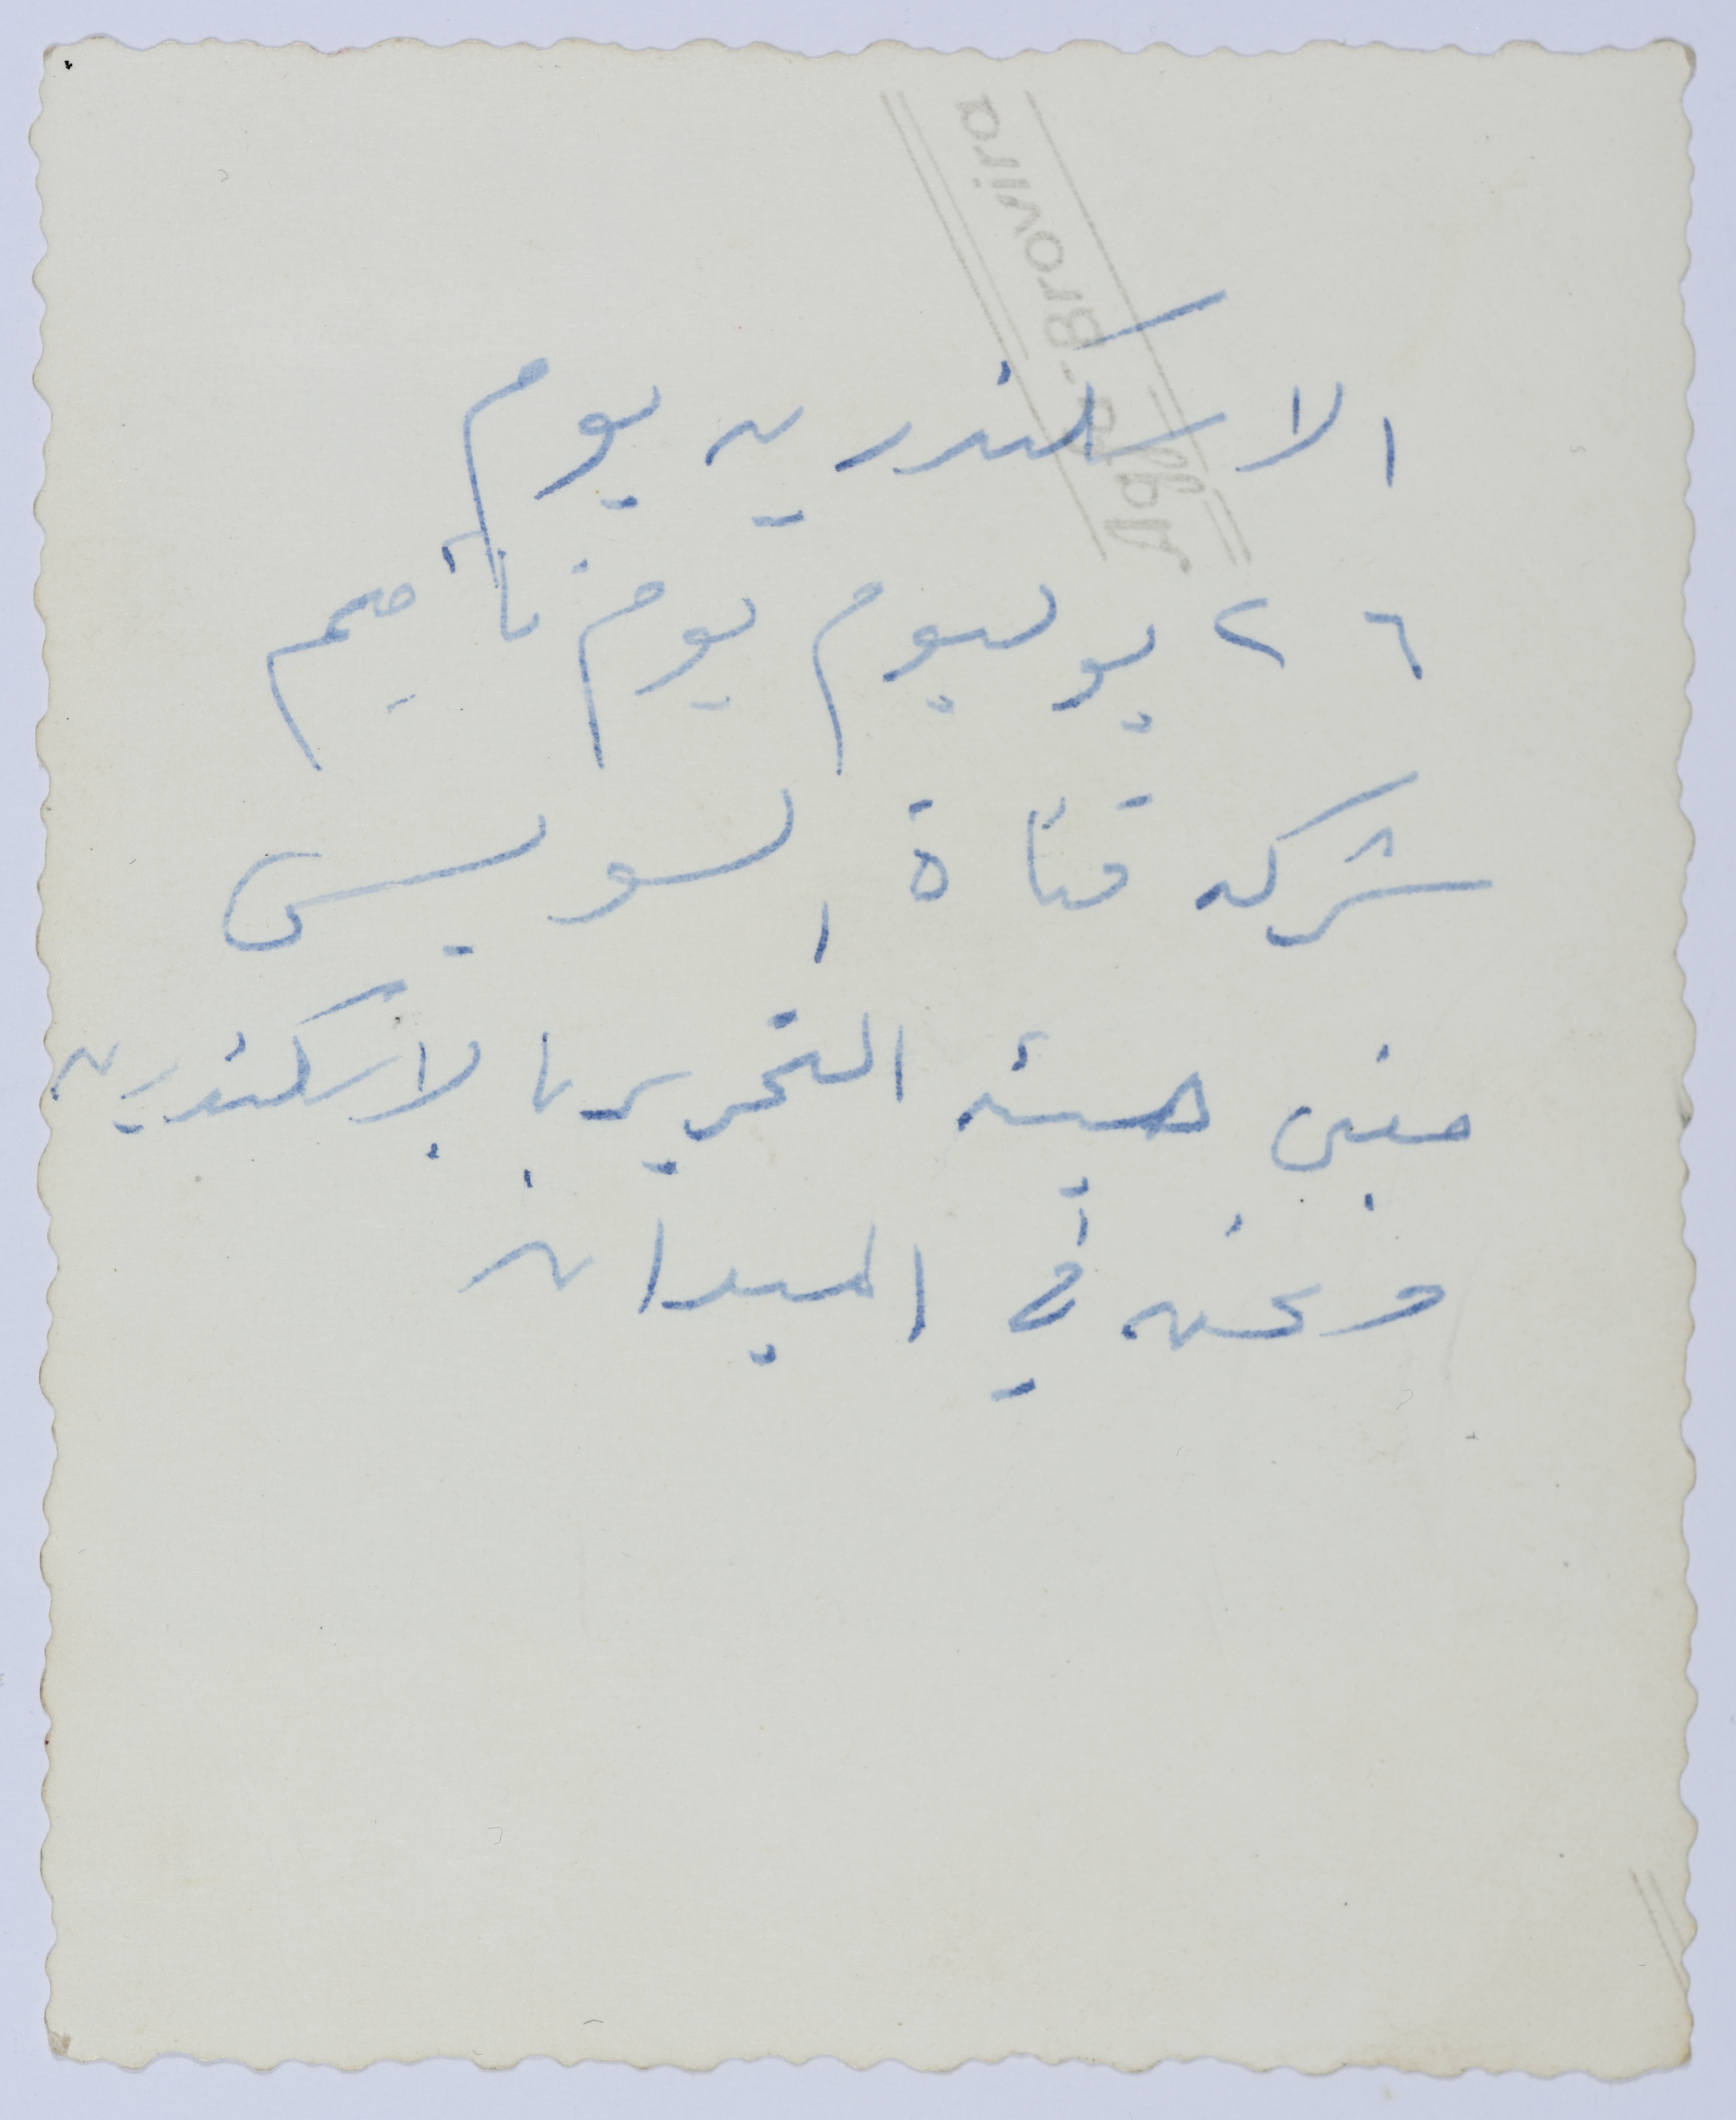 Agfa-Brovira
الاسكندريه يوم
٢٦ يوليوم يوم تأميم
شركه قناة السويس
مبنى هيئه التحرير بالاسكندريه
ونحن في الميدان